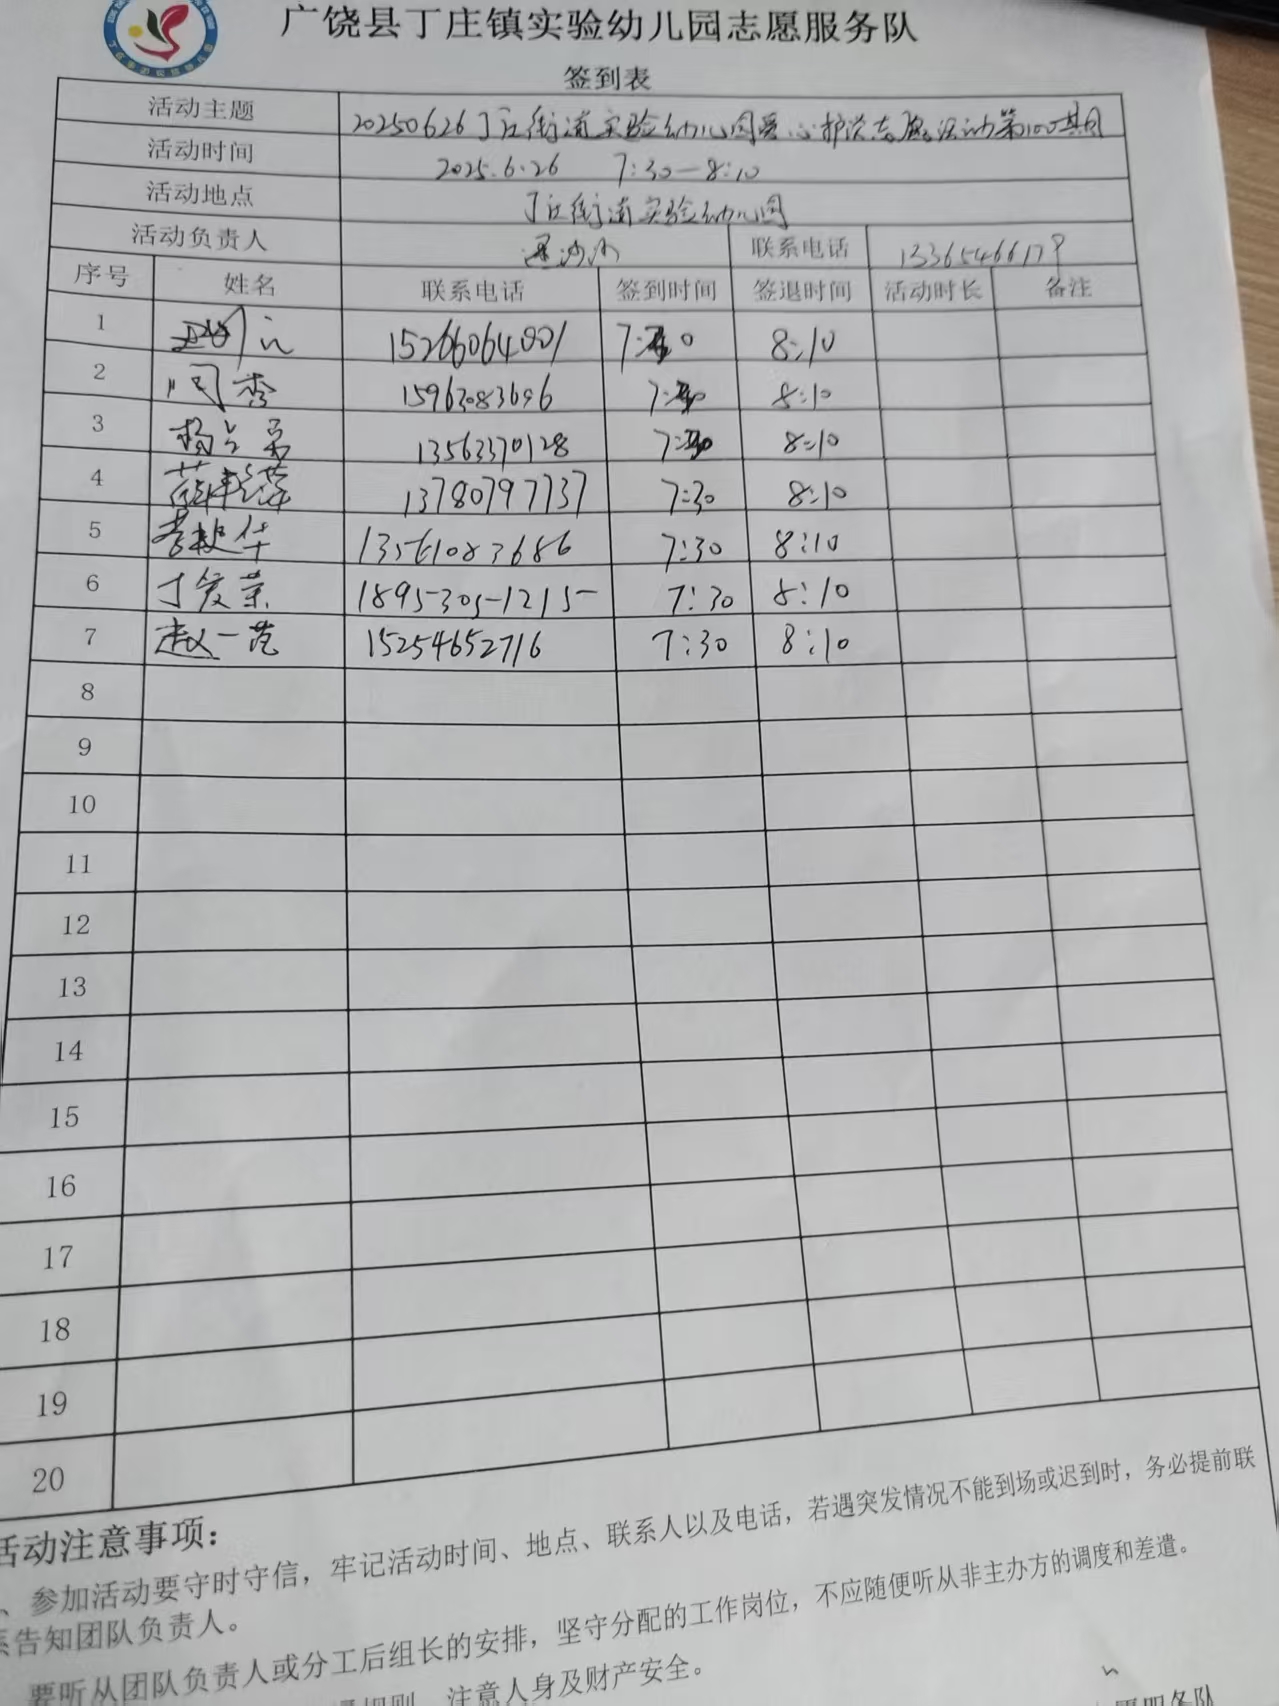 广饶县丁庄镇实验幼儿园志愿服务队
签到表
活动主题 20250626丁庄街道实验幼儿园爱心护学志愿活动第100期
活动时间 2025.6.26 7:30—8:10
活动地点 丁庄街道实验幼儿园
活动负责人 联系电话 13365466179
序号 姓名 联系电话 签到时间 签退时间 活动时长 备注
1 15266064001 7:30 8:10
2 闫秀 15963083696 7:30 8:10
3 13563370128 7:30 8:10
4 薛 13780797737 7:30 8:10
5 李 华 13561083686 7:30 8:10
6 丁爱荣 1895305-1215 7:30 8:10
7 赵一范 15254652716 7:30 8:10
8
9
10
11
12
13
14
15
16
17
18
19
20
活动注意事项：
、参加活动要守时守信，牢记活动时间、地点、联系人以及电话，若遇突发情况不能到场或迟到时，务必提前联
系告知团队负责人。
要听从团队负责人或分工后组长的安排，坚守分配的工作岗位，不应随便听从非主办方的调度和差遣。
细则，注意人身及财产安全。
愿服务队